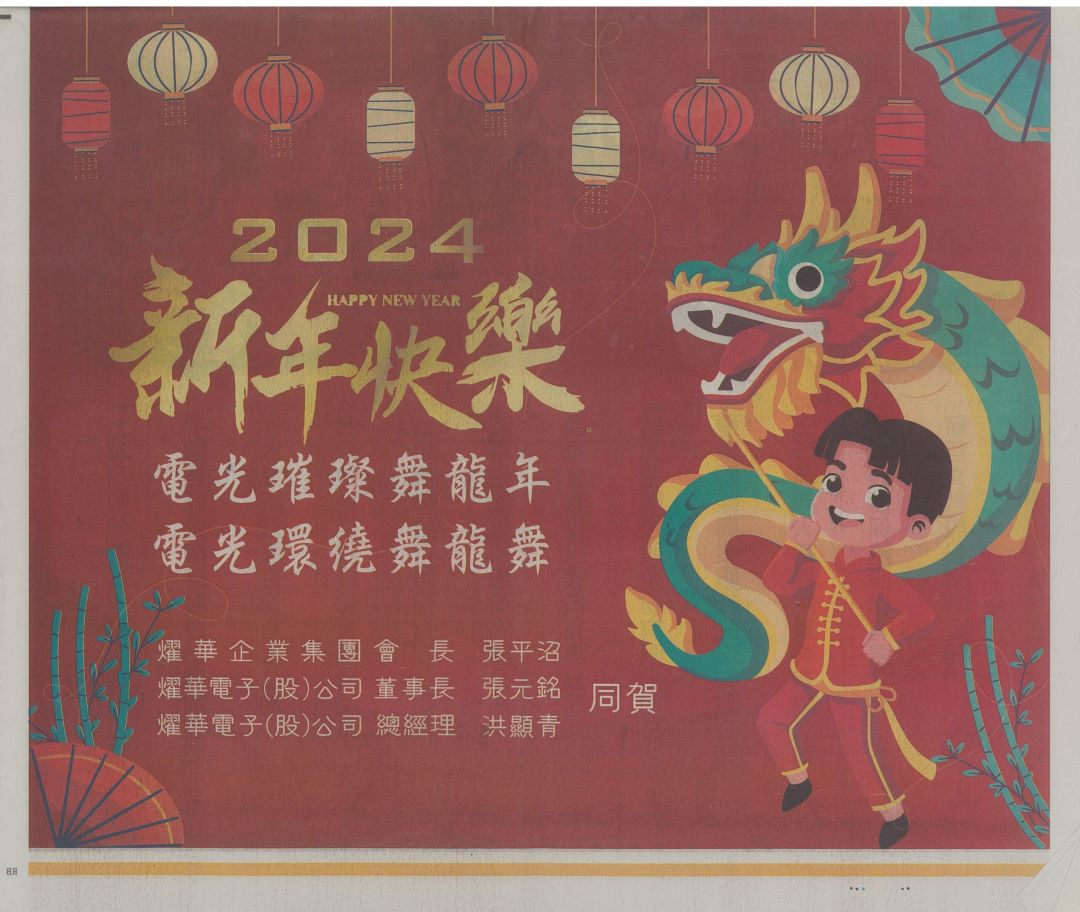 2024
新年快樂
HAPPY NEW YEAR
電光璀璨舞龍年
電光環繞舞龍舞
燿華企業集團會長 張平沼
燿華電子(股)公司 董事長 張元銘
燿華電子(股)公司 總經理 洪顯青
同賀